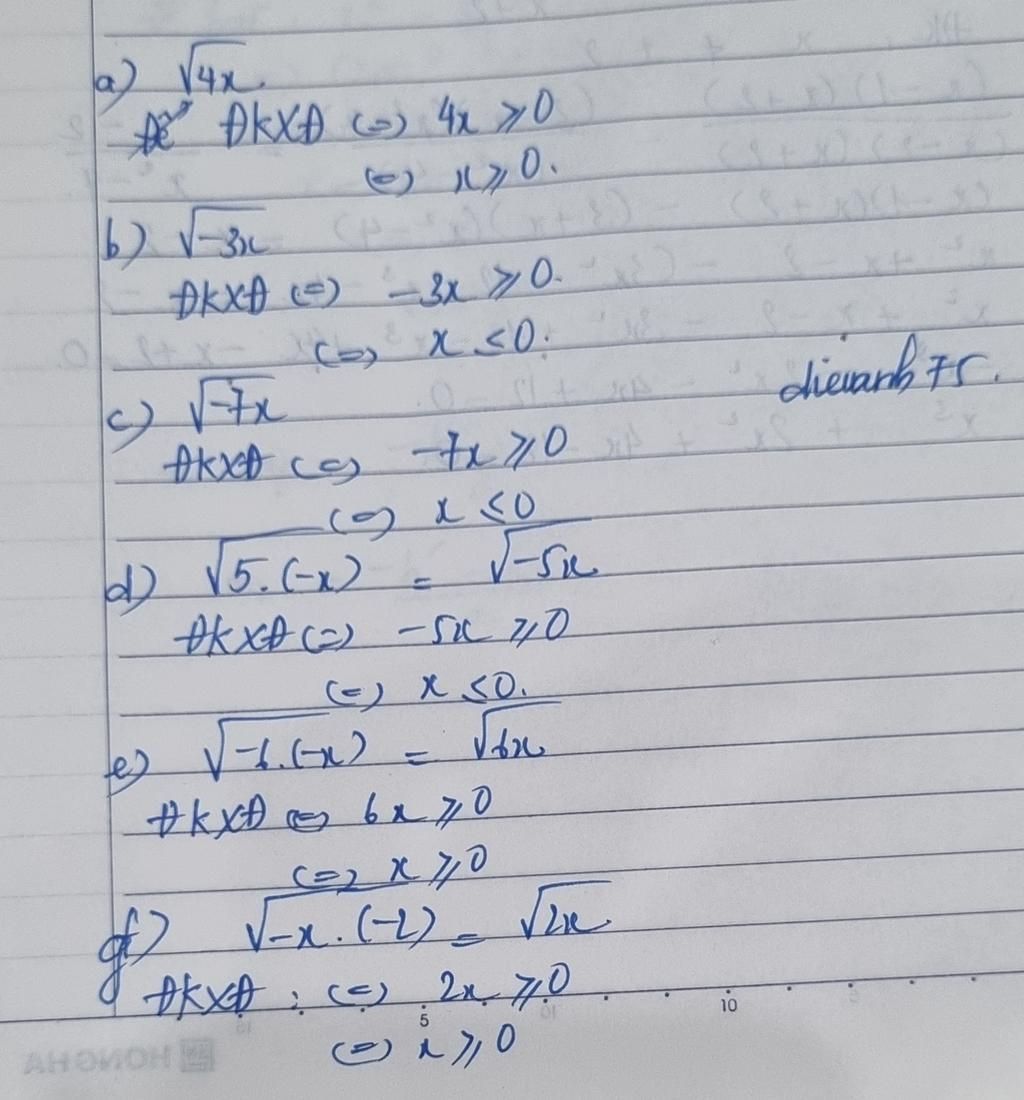 a) √4x.
ĐKXĐ (=) 4x ⩾ 0
(=) x ⩾ 0.
b) √-3x
ĐKXĐ (=) -3x ⩾ 0.
(=) x ⩽ 0.
c) √-7x
dieuanh75.
ĐKXĐ (=) -7x ⩾ 0
(=) x ⩽ 0
d) √5.(-x) = √-5x
ĐKXĐ (=) -5x ⩾ 0
(=) x ⩽ 0.
e) √-6.(-x) = √6x
ĐKXĐ (=) 6x ⩾ 0
(=) x ⩾ 0
f) √-x.(-2) = √2x
ĐKXĐ : (=) 2x ⩾ 0
5 10
(=) x ⩾ 0
HONGHA